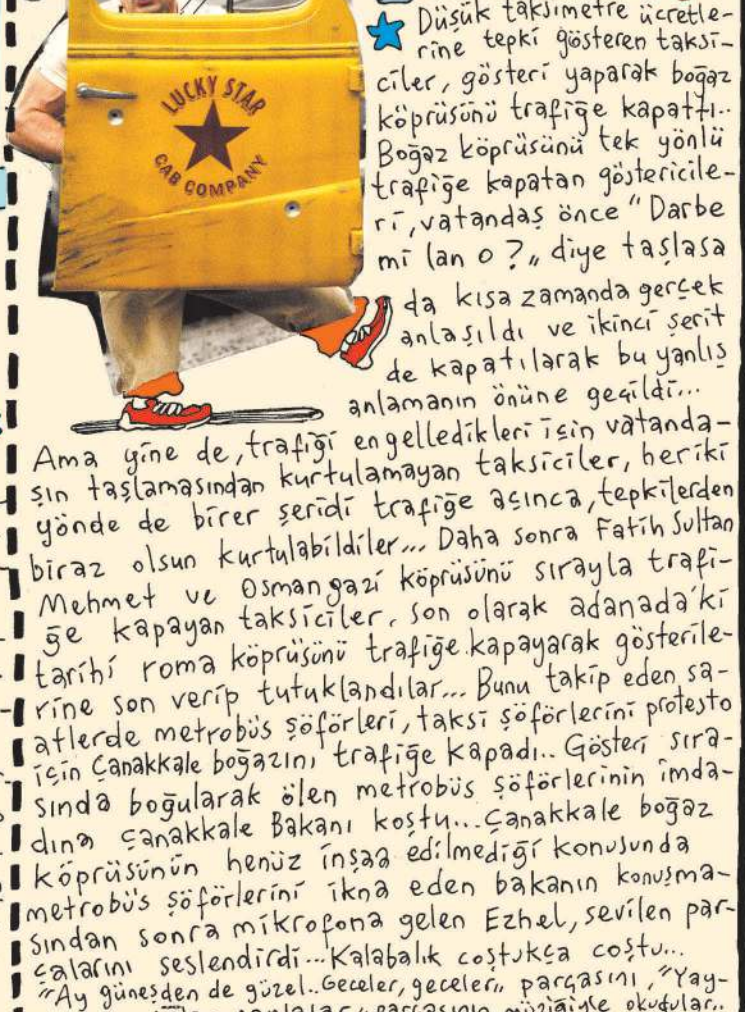 LUCKY STAR
CAB COMPANY
Düşük taksimetre ücretle-
rine tepki gösteren taksi-
ciler, gösteri yaparak boğaz
köprüsünü trafiğe kapattı..
Boğaz köprüsünü tek yönlü
trafiğe kapatan göstericile-
ri, vatandaş önce "Darbe
mi lan o?" diye taşlasa
da kısa zamanda gerçek
anlaşıldı ve ikinci şerit
de kapatılarak bu yanlış
anlamanın önüne geçildi...
Ama yine de, trafiği engelledikleri için vatanda-
şın taşlamasından kurtulamayan taksiciler, her iki
yönde de birer şeridi trafiğe açınca, tepkilerden
biraz olsun kurtulabildiler... Daha sonra Fatih Sultan
Mehmet ve Osmangazi köprüsünü sırayla trafi-
ğe kapayan taksiciler, son olarak adanada'ki
tarihi roma köprüsünü trafiğe kapayarak gösterile-
rine son verip tutuklandılar... Bunu takip eden sa-
atlerde metrobüs şöförleri, taksi şöförlerini protesto
için Çanakkale boğazını trafiğe kapadı.. Gösteri sıra-
sında boğularak ölen metrobüs şöförlerinin imda-
dına çanakkale Bakanı koştu... Çanakkale boğaz
köprüsünün henüz inşaa edilmediği konusunda
metrobüs şöförlerini ikna eden bakanın konuşma-
sından sonra mikrofona gelen Ezhel, sevilen par-
çalarını seslendirdi... Kalabalık coştukça coştu...
"Ay güneşden de güzel.. Geceler, geceler" parçasını, "Yay-
parçasının müziğiyle okudular..